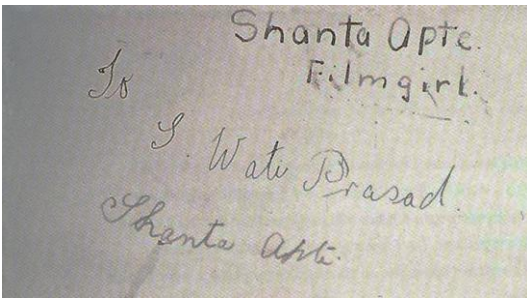 Shanta Apte.
Filmgirl.
To
S. Wati Prasad.
Shanta Apte.